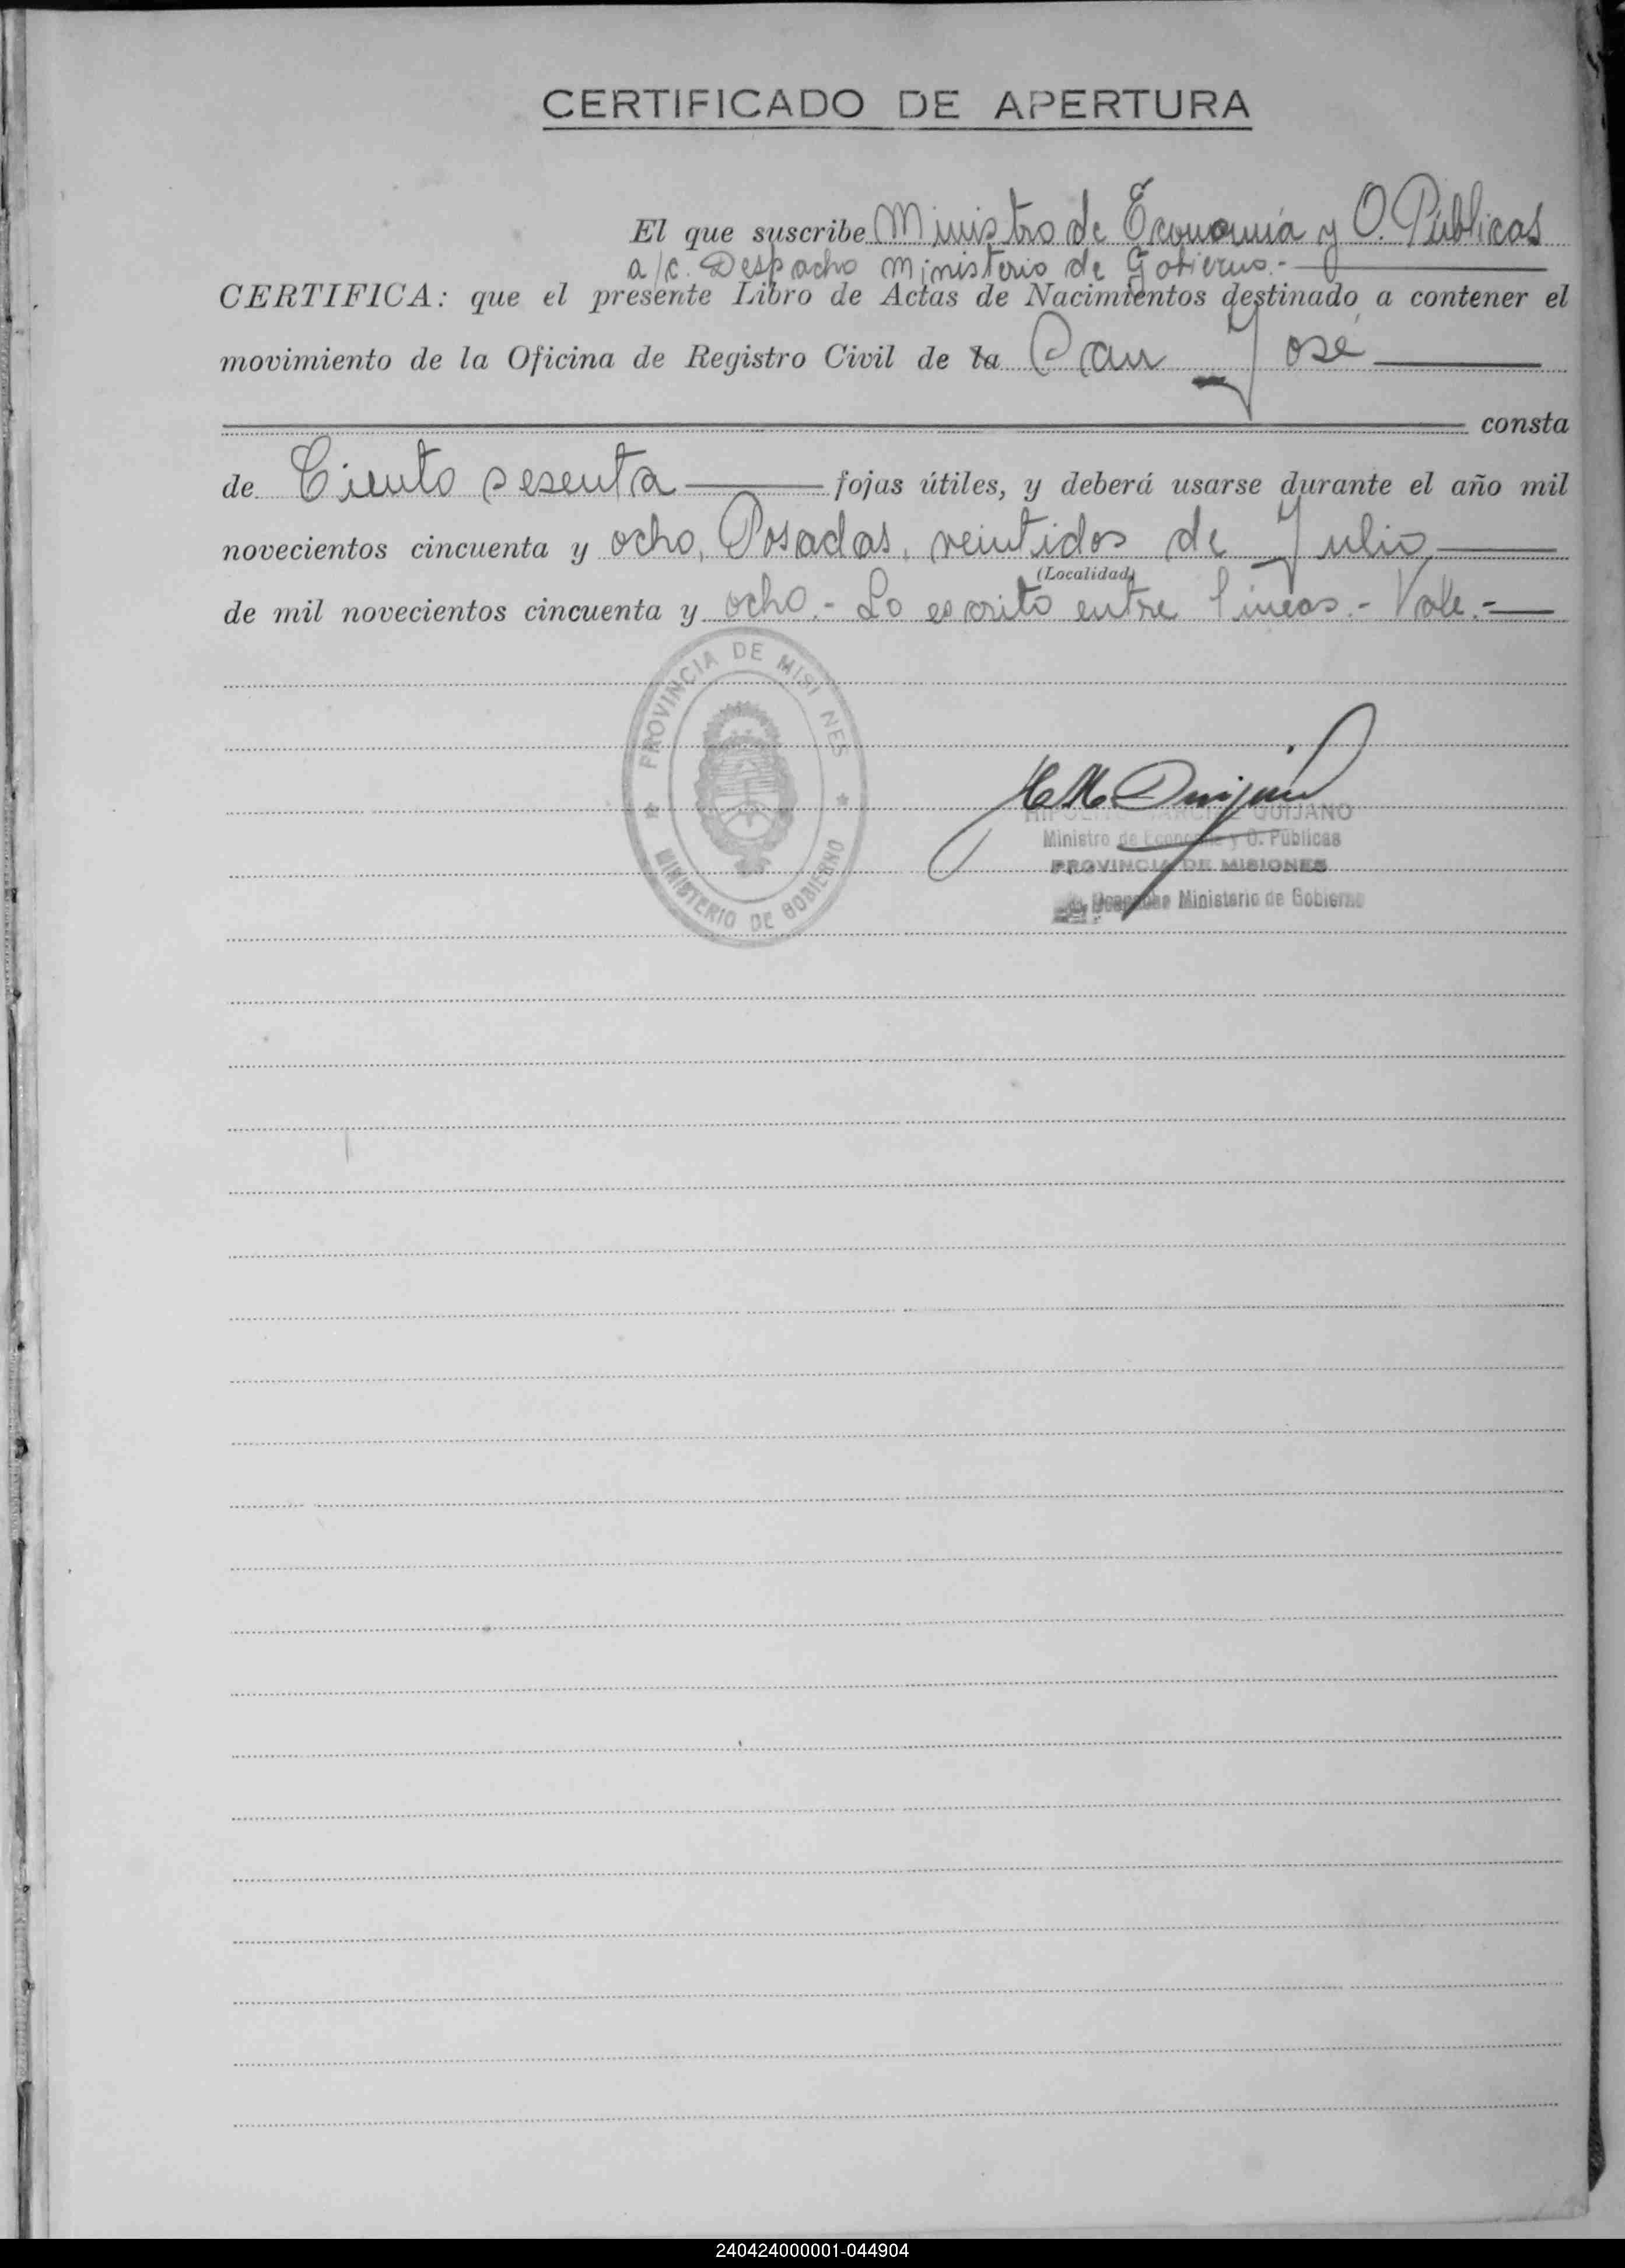 CERTIFICADO DE APERTURA
El que suscribe Ministro de Economía y O. Públicas
a/c. Despacho Ministerio de Gobierno.-
CERTIFICA: que el presente Libro de Actas de Nacimientos destinado a contener el
movimiento de la Oficina de Registro Civil de la San José
consta
de Ciento sesenta fojas útiles, y deberá usarse durante el año mil
novecientos cincuenta y ocho, Posadas, veintidos de Julio
(Localidad)
de mil novecientos cincuenta y ocho.- Lo escrito entre líneas.- Vale.-
PROVINCIA DE MISI NES
MINISTERIO DE GOBIERNO
QUIJANO
Ministro de Economía y O. Públicas
PROVINCIA DE MISIONES
Despacho Ministerio de Gobierno
240424000001-044904